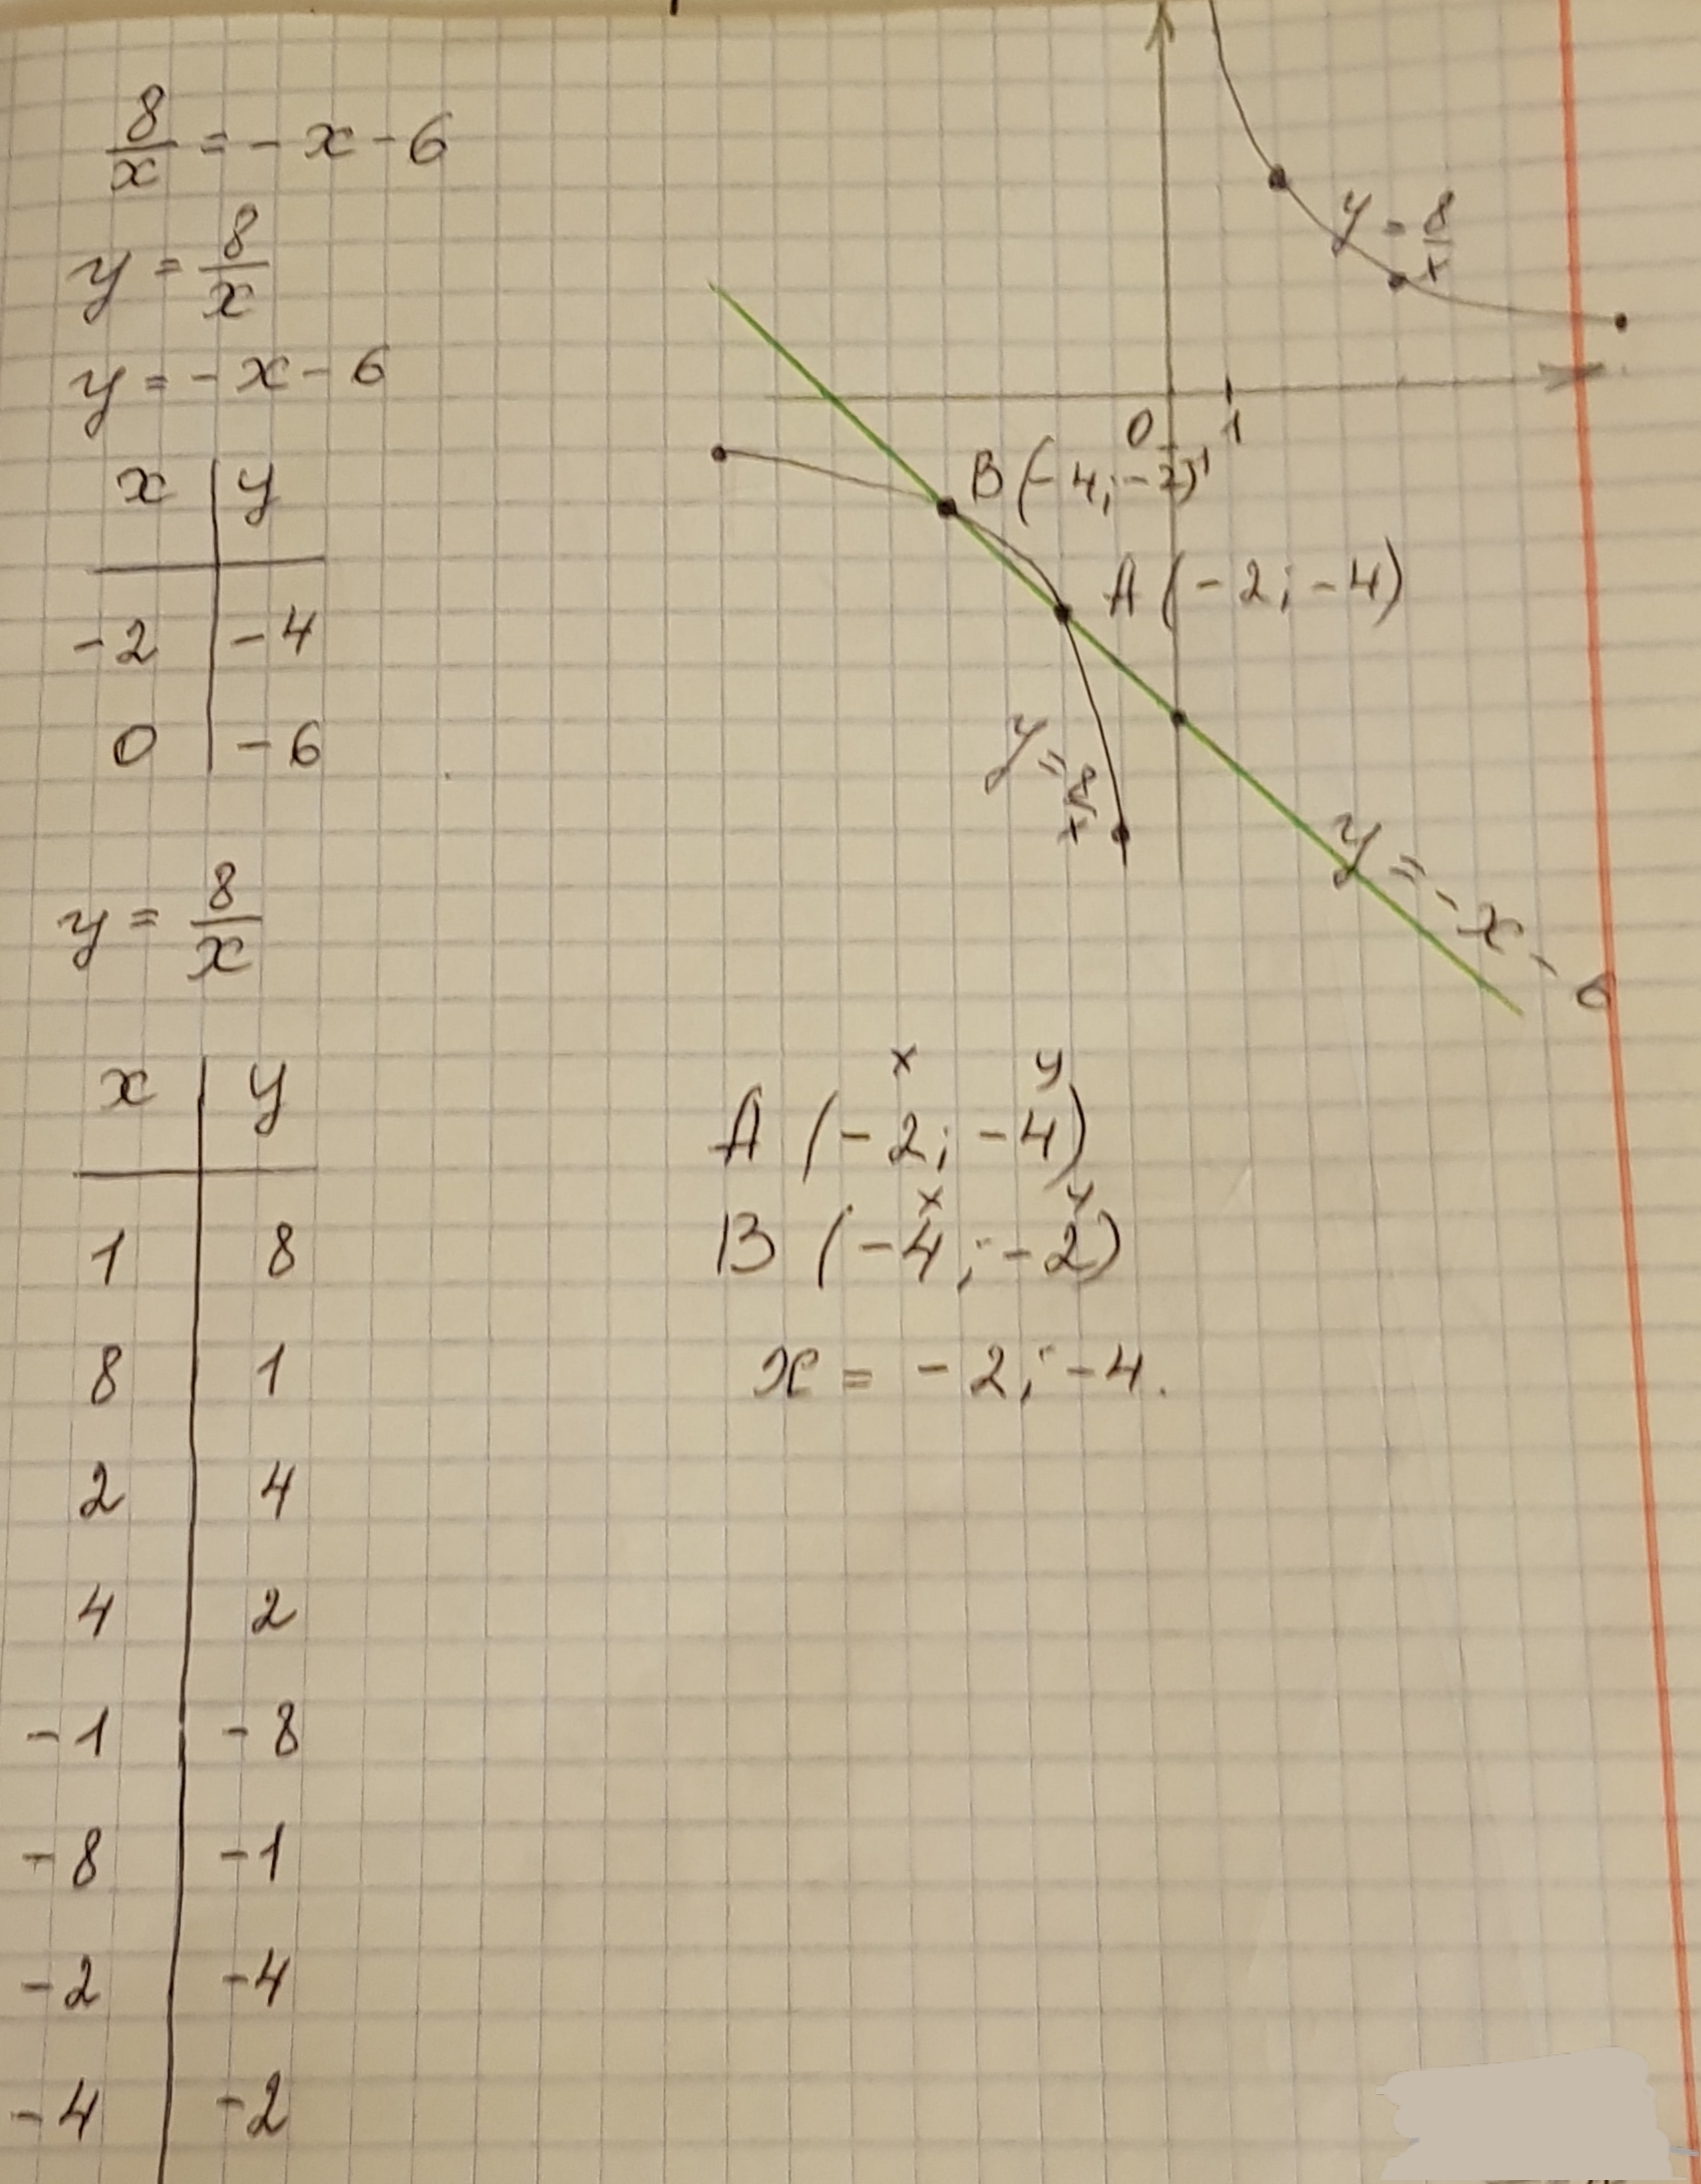 8/x = - x - 6
y = 8/x
y = - x - 6
x | y
-2 | -4
0 | -6
y = 8/x
x | y
1 | 8
8 | 1
2 | 4
4 | 2
-1 | -8
-8 | -1
-2 | -4
-4 | -2
y = 8/x
0 1
-1
B (-4; -2)
A (-2; -4)
y = 8/x
y = - x - 6
x y
A (-2; -4)
x y
B (-4; -2)
x = -2; -4.